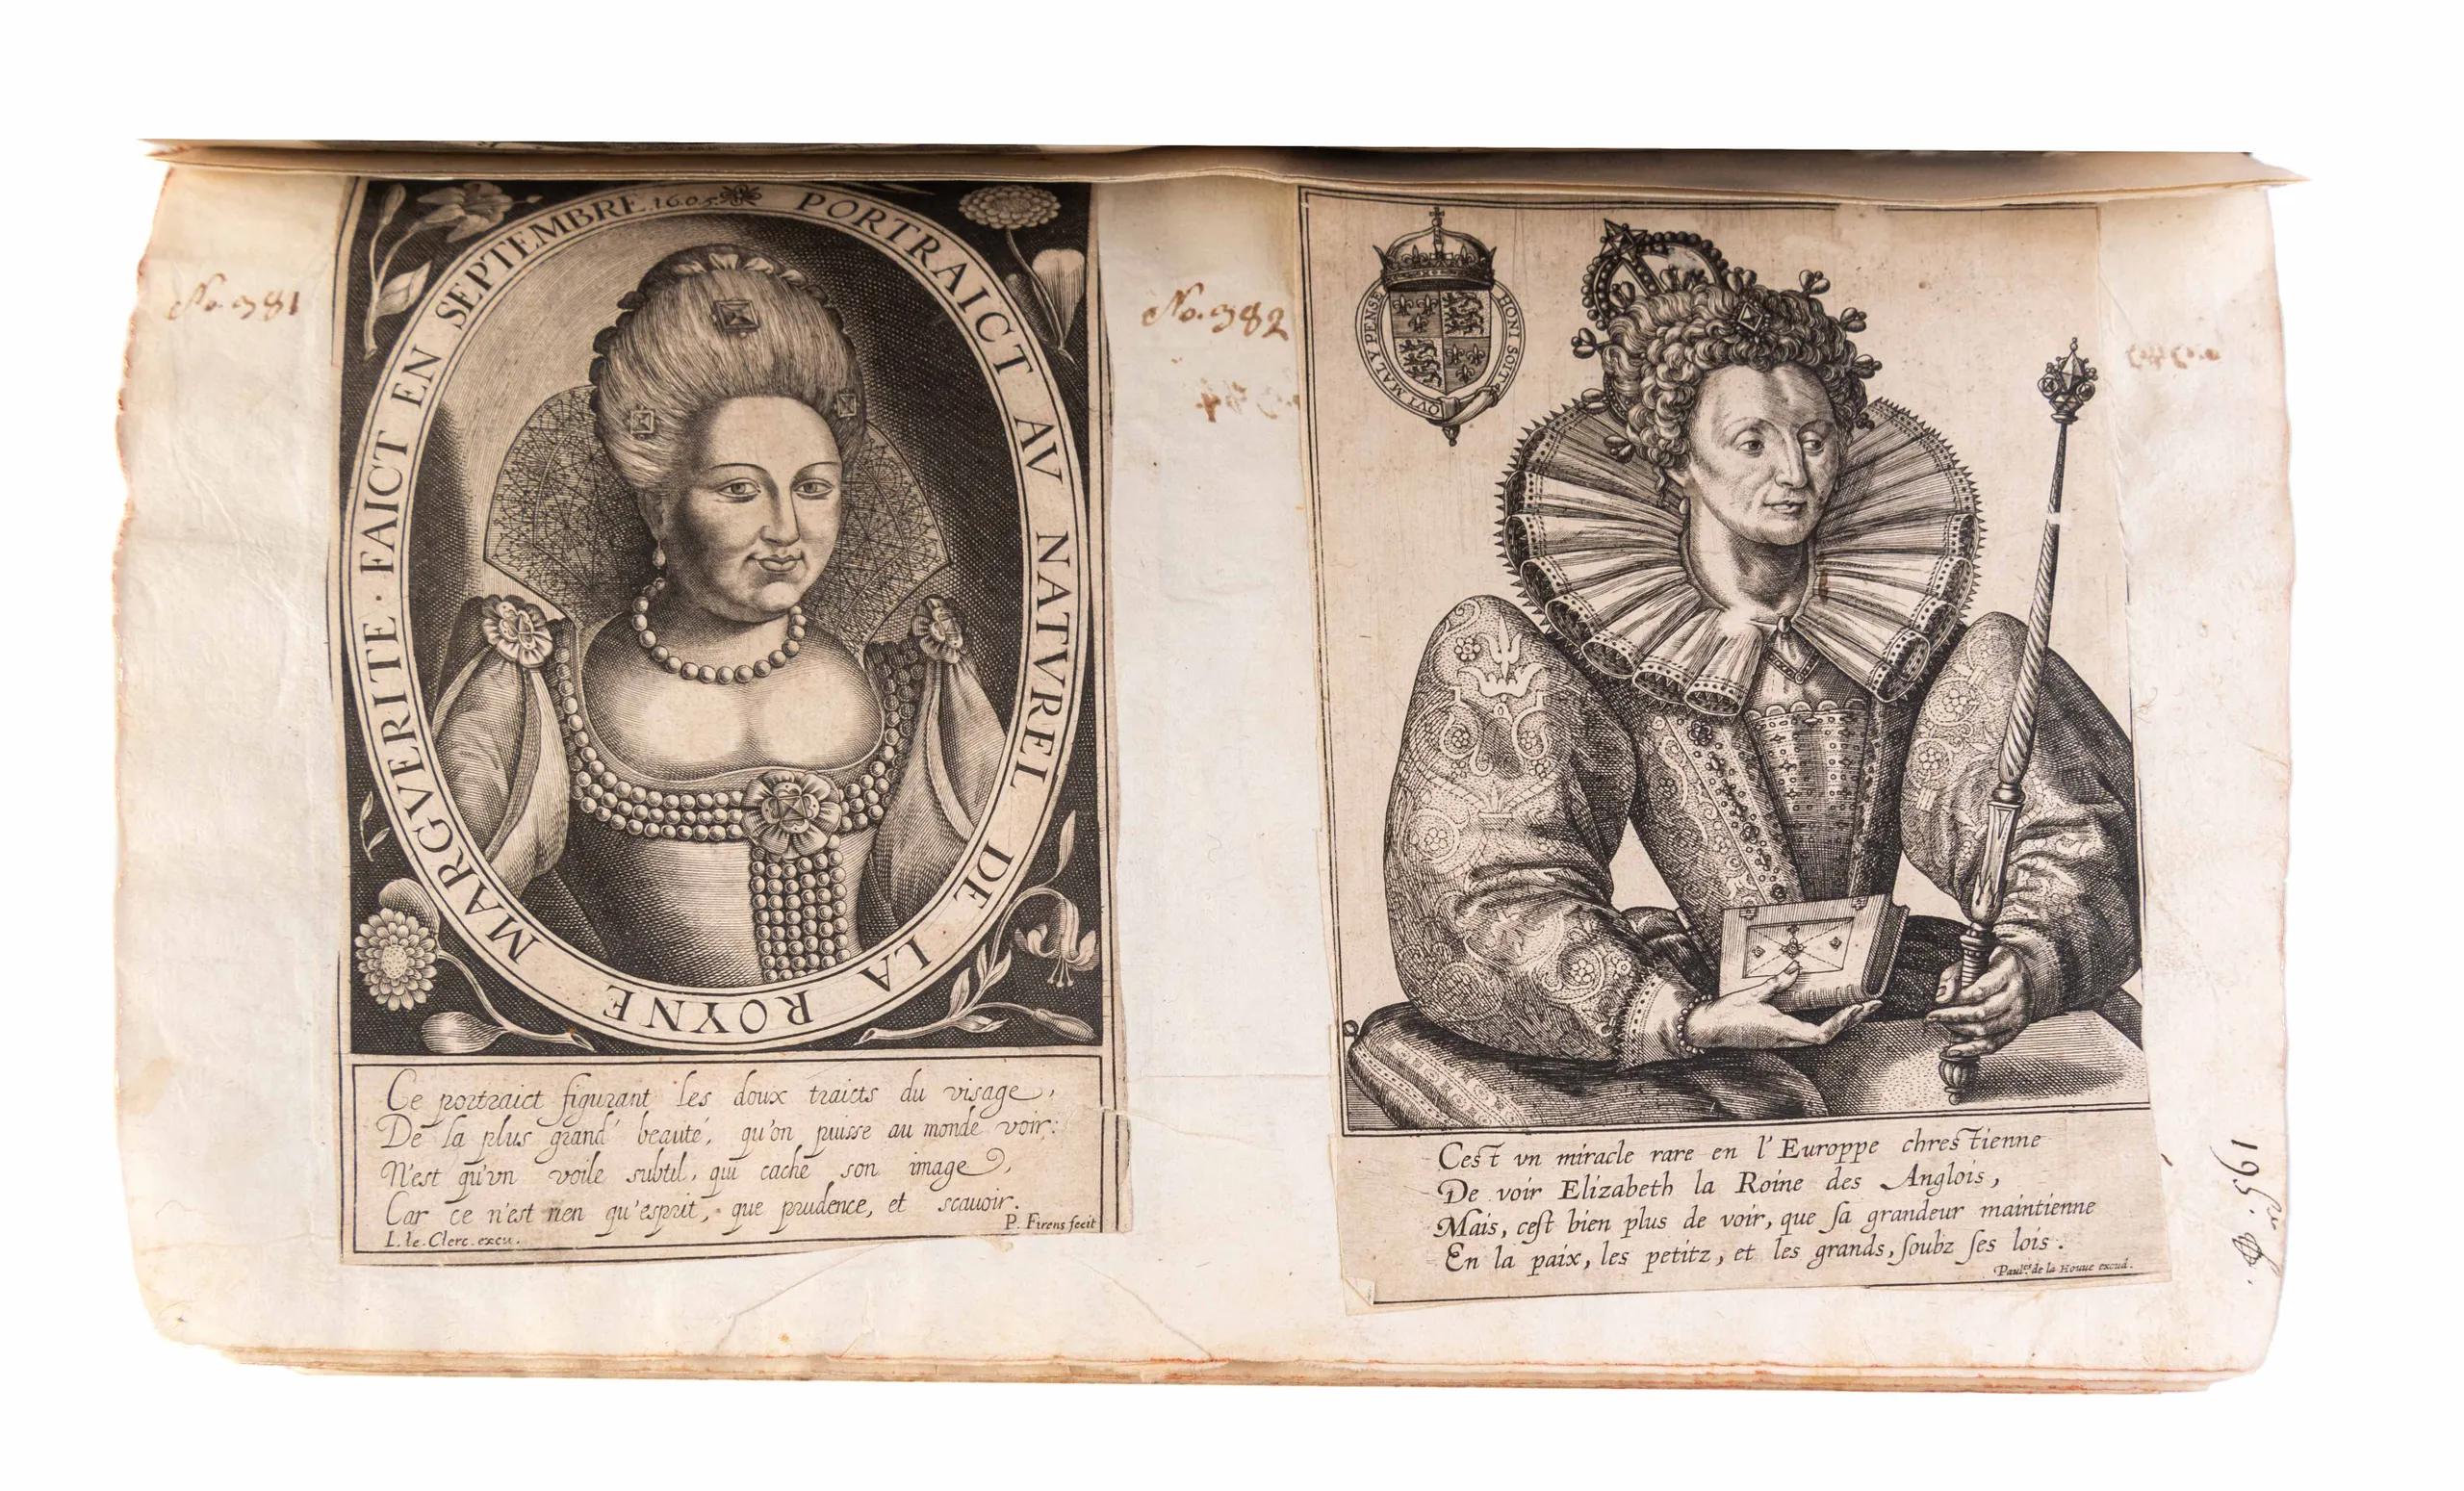 No. 381
PORTRAICT AV NATVREL DE LA ROYNE MARGVERITE · FAICT EN SEPTEMBRE. 1605.
Ce portraict figurant les doux traicts du visage,
De la plus grand' beauté, qu'on puisse au monde voir:
N'est qu'vn voile subtil, qui cache son image,
Car ce n'est rien qu'esprit, que prudence, et scauoir.
P. Firens fecit
I. le. Clerc. excu.
No. 382
HONI SOIT QVI MAL Y PENSE
Cest vn miracle rare en l'Europpe chrestienne
De voir Elizabeth la Roine des Anglois,
Mais, cest bien plus de voir, que sa grandeur maintienne
En la paix, les petitz, et les grands, soubz ses lois.
Paulus de la Houue excud.
195.